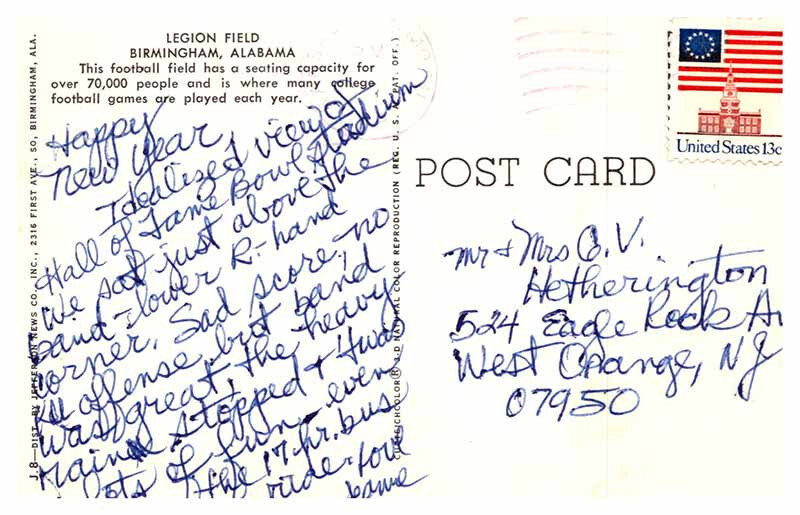 LEGION FIELD
BIRMINGHAM, ALABAMA
This football field has a seating capacity for
over 70,000 people and is where many college
football games are played each year.
Happy
New Year,
Idealized view of
Hall of Fame Bowl Stadium
We sat just above the
band - lower R-hand
corner. Sad score, no
offense, but band
was great, the heavy
rains stopped & 'twas
lots of fun - even
the 17-hr. bus
ride. four
J.8—DIST. BY JEFFERSON NEWS CO., INC., 2316 FIRST AVE., SO, BIRMINGHAM, ALA.
NATURAL COLOR REPRODUCTION (REG. U. S. PAT. OFF.)
POST CARD
United States 13c
Mr & Mrs C. V.
Hetherington
524 Eagle Rock Av
West Orange, NJ
07950